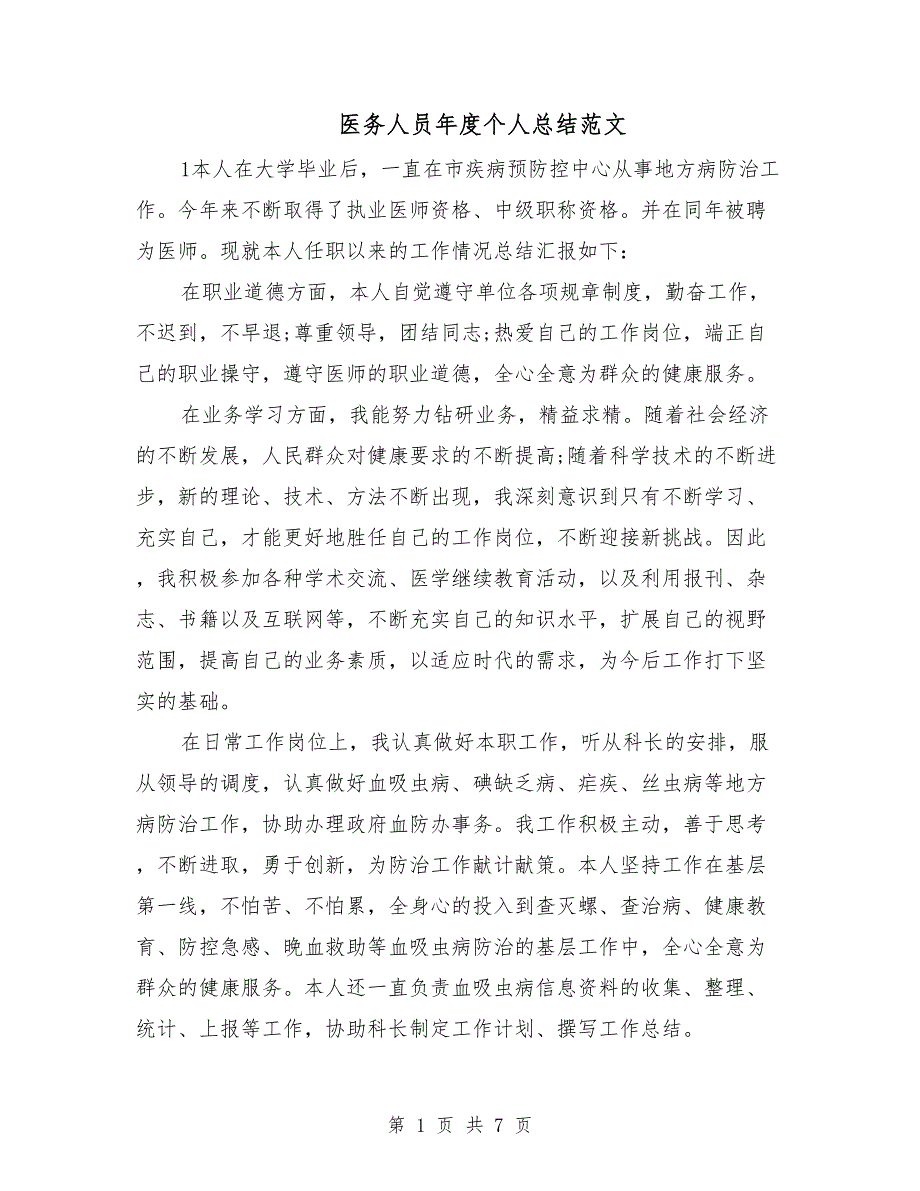 医务人员年度个人总结范文
1本人在大学毕业后，一直在市疾病预防控中心从事地方病防治工
作。今年来不断取得了执业医师资格、中级职称资格。并在同年被聘
为医师。现就本人任职以来的工作情况总结汇报如下：
在职业道德方面，本人自觉遵守单位各项规章制度，勤奋工作，
不迟到，不早退;尊重领导，团结同志;热爱自己的工作岗位，端正自
己的职业操守，遵守医师的职业道德，全心全意为群众的健康服务。
在业务学习方面，我能努力钻研业务，精益求精。随着社会经济
的不断发展，人民群众对健康要求的不断提高;随着科学技术的不断进
步，新的理论、技术、方法不断出现，我深刻意识到只有不断学习、
充实自己，才能更好地胜任自己的工作岗位，不断迎接新挑战。因此
，我积极参加各种学术交流、医学继续教育活动，以及利用报刊、杂
志、书籍以及互联网等，不断充实自己的知识水平，扩展自己的视野
范围，提高自己的业务素质，以适应时代的需求，为今后工作打下坚
实的基础。
在日常工作岗位上，我认真做好本职工作，听从科长的安排，服
从领导的调度，认真做好血吸虫病、碘缺乏病、疟疾、丝虫病等地方
病防治工作，协助办理政府血防办事务。我工作积极主动，善于思考
，不断进取，勇于创新，为防治工作献计献策。本人坚持工作在基层
第一线，不怕苦、不怕累，全身心的投入到查灭螺、查治病、健康教
育、防控急感、晚血救助等血吸虫病防治的基层工作中，全心全意为
群众的健康服务。本人还一直负责血吸虫病信息资料的收集、整理、
统计、上报等工作，协助科长制定工作计划、撰写工作总结。
第 1 页 共 7 页